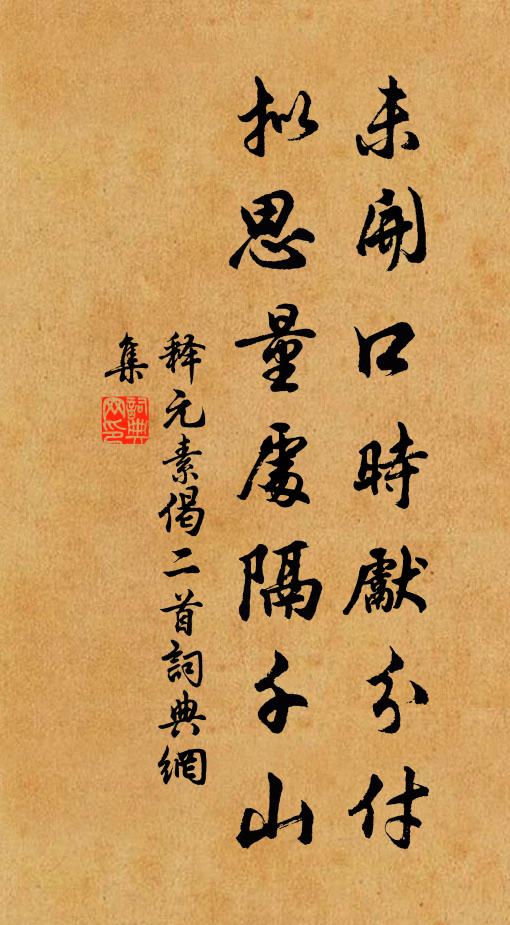 未開口時獻分付
拟思量處隔千山
释元素偈二首詞典網
集
詞典網印